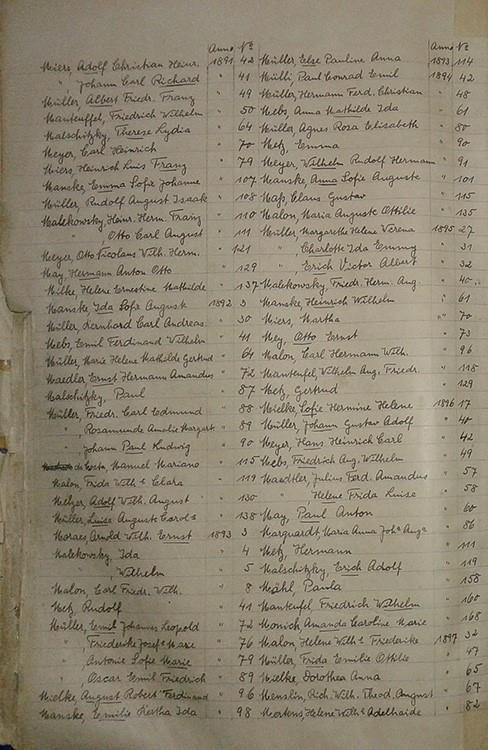 Anno No
Miers, Adolf Christian Heinr. 1891 42
", Johann Carl Richard " 41
Müller, Albert Friedr. Franz " 49
Manteuffel, Friedrich Wilhelm " 50
Malschitzky, Therese Lydia " 64
Meyer, Carl Heinrich " 70
Miers Heinrich Luis Franz " 79
Manske, Emma Sofie Johanne " 107
Müller, Rudolf August Isaak " 108
Malekowsky, Heinr. Herm. Franz " 110
", Otto Carl August " 111
Meyer, Otto Nicolaus Wilh. Herm. " 121
May, Hermann Anton Otto " 129
Milke, Helene Ernestine Mathilde " 137
Manske, Ida Sofie Auguste 1892 3
Müller, Bernhard Carl Andreas " 30
Mebs, Emil Ferdinand Wilhelm " 41
Müller, Marie Helene Mathilde Gertrud " 64
Maedler, Ernst Hermann Amandus " 72
Malschitzky, Paul " 87
Müller, Friedr. Carl Edmund " 88
", Rosamunde Amalie Margart " 89
", Johann Paul Ludwig " 90
da Costa, Manuel Mariano " 115
Malon, Frida Wilh. Clara " 119
Metzer, Adolf Wilh. August " 130
Müller, Luise Auguste Carol. " 138
Moraes, Arnold Wilh. Ernst 1893 3
Malekowsky, Ida " 4
", Wilhelm " 5
Malon, Carl Friedr. Wilh. " 8
Metz, Rudolf " 41
Müller, Emil Johannes Leopold " 72
", Friederike Josef. Marie " 76
", Antonie Sofie Marie " 79
", Oscar Emil Friedrich " 89
Mielke, August Robert Ferdinand " 96
Manske, Emilie Bertha Ida " 98
Anno No
Müller, Else Pauline Anna 1893 114
Mülli, Paul Conrad Emil 1894 42
Müller, Hermann Ferd. Christian " 48
Mebs, Anna Mathilde Ida " 61
Müller, Agnes Rosa Elisabeth " 80
Metz, Emma " 90
Meyer, Wilhelm Rudolf Hermann " 91
Manske, Anna Sofie Auguste " 101
Maß, Claus Gustav " 115
Malon, Maria Auguste Ottilie " 135
Müller, Margarethe Helene Verena 1895 27
", Charlotte Ida Emmy " 31
", Erich Victor Albert " 32
Malekowsky, Friedr. Herm. Aug. " 40
Manske, Heinrich Wilhelm " 61
Miers, Martha " 70
Mey, Otto Ernst " 73
Malon, Carl Hermann Wilh. " 96
Manteufel, Wilhelm Aug. Friedr. " 118
Metz, Gertrud " 129
Mielke, Sofie Hermine Helene 1896 17
Müller, Johann Gustav Adolf " 40
Meyer, Hans Heinrich Carl " 42
Mebs, Friedrich Aug. Wilhelm " 49
Maedler, Julius Ferd. Amandus " 57
" Helene Frida Luise " 58
May, Paul Anton " 60
Marquardt, Maria Anna Joh. Aug. " 86
Metz, Hermann " 111
Malschitzky, Erich Adolf " 119
Mähl, Paula " 158
Manteufel, Friedrich Wilhelm " 160
Monich, Amanda Caroline Marie " 168
Malon, Helene Wilh. Friederike 1897 32
Müller, Frida Emilie Ottilie " 47
Mielke, Dorothea Anna " 65
Menslin, Rich. Wilh. Theod. August " 67
Mertens, Helene Wilh. Adelhaide " 82